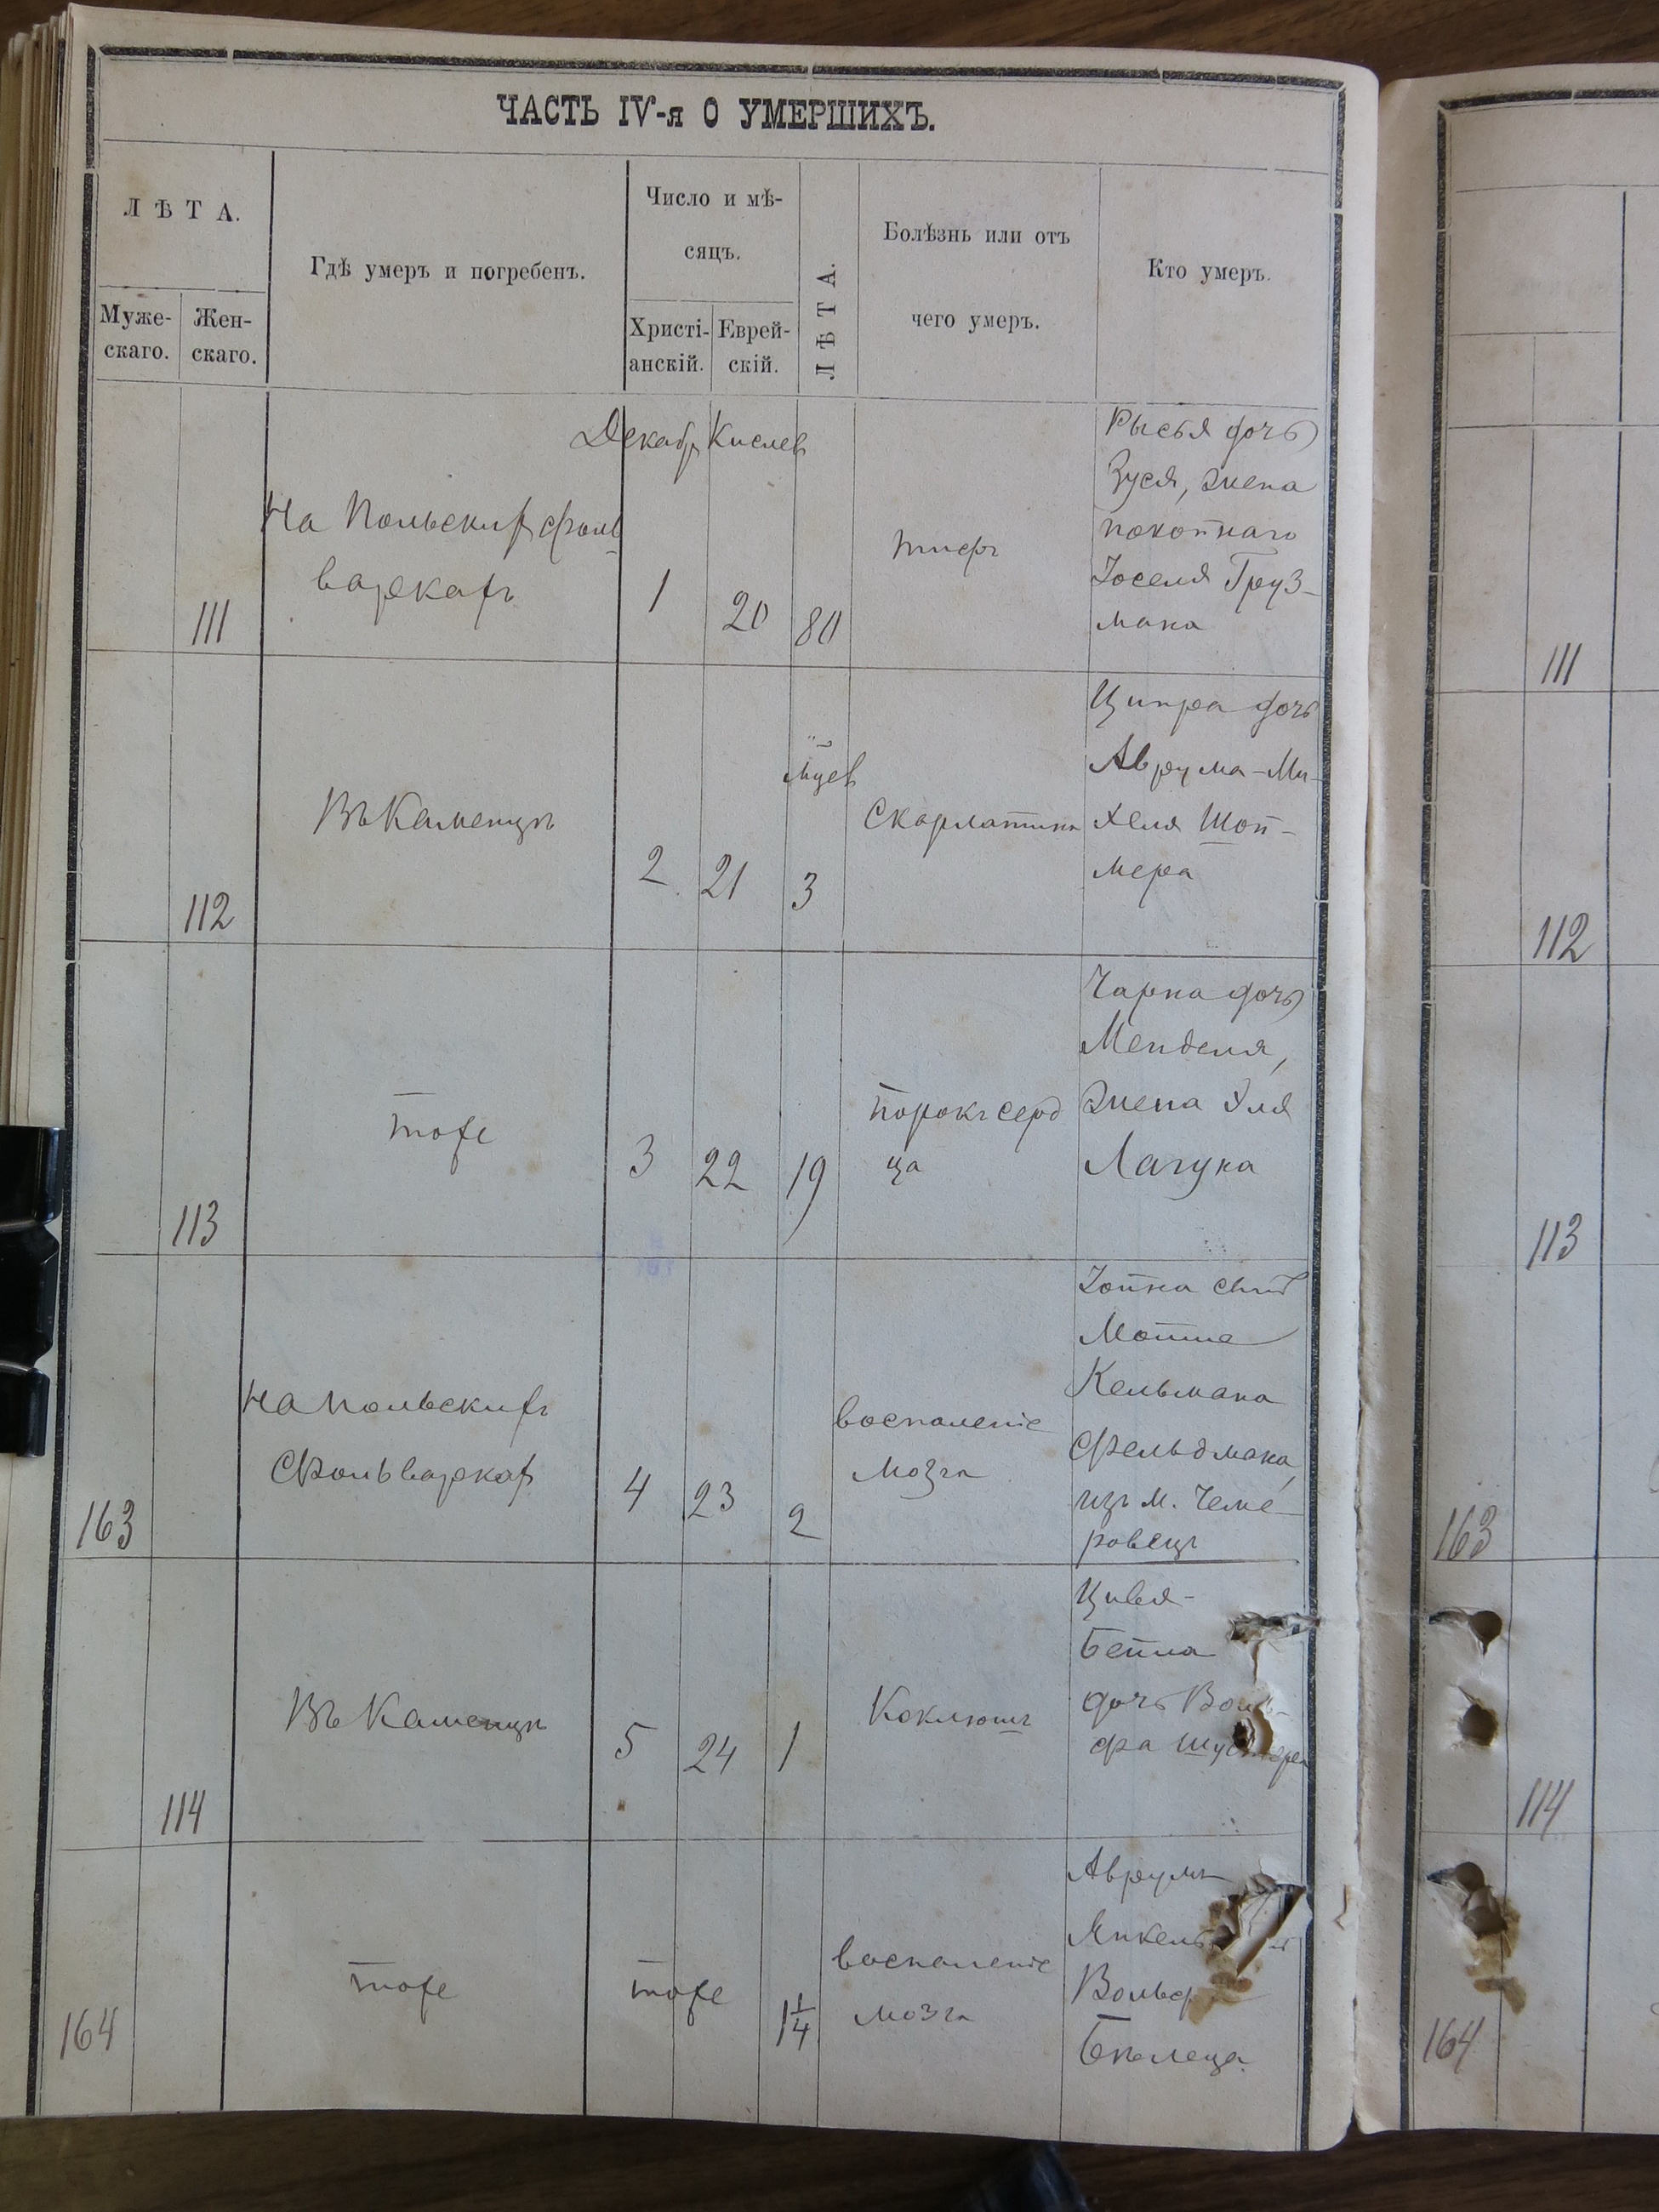 ЧАСТЬ IV-я О УМЕРШИХЪ.
ЛѢТА.
Муже-
скаго.
Жен-
скаго.
Гдѣ умеръ и погребенъ.
Число и мѣ-
сяцъ.
Христі-
анскій.
Еврей-
скій.
ЛѢТА.
Болѣзнь или отъ
чего умеръ.
Кто умеръ.
Декабр Кислев
111
На Польских фоль
варкахъ
1
20
80
тифъ
Рыся дочь
Зуся, жена
покойнаго
Іоселя Груз-
мана
112
Въ Каменцѣ
2
21
мцев
3
Скарлатина
Ципра дочь
Аврума-Ми-
хеля Шой-
мера
113
тоже
3
22
19
порокъ серд
ца
Чарна дочь
Менделя,
жена Эля
Лагука
163
На Польскихъ
Фольваркахъ
4
23
2
воспаленіе
мозга
Іойна сынъ
Мотте
Кельмана
Фельдмана,
изъ м. Чеме-
ровецъ
114
Въ Каменцѣ
5
24
1
Коклюшъ
Цивья-
Бейла
дочь Воль-
фа Шустера
164
тоже
тоже
1 1/4
воспаленіе
мозга
Аврумъ
Янкель
Вольф
Бѣлеца
111
112
113
163
114
164